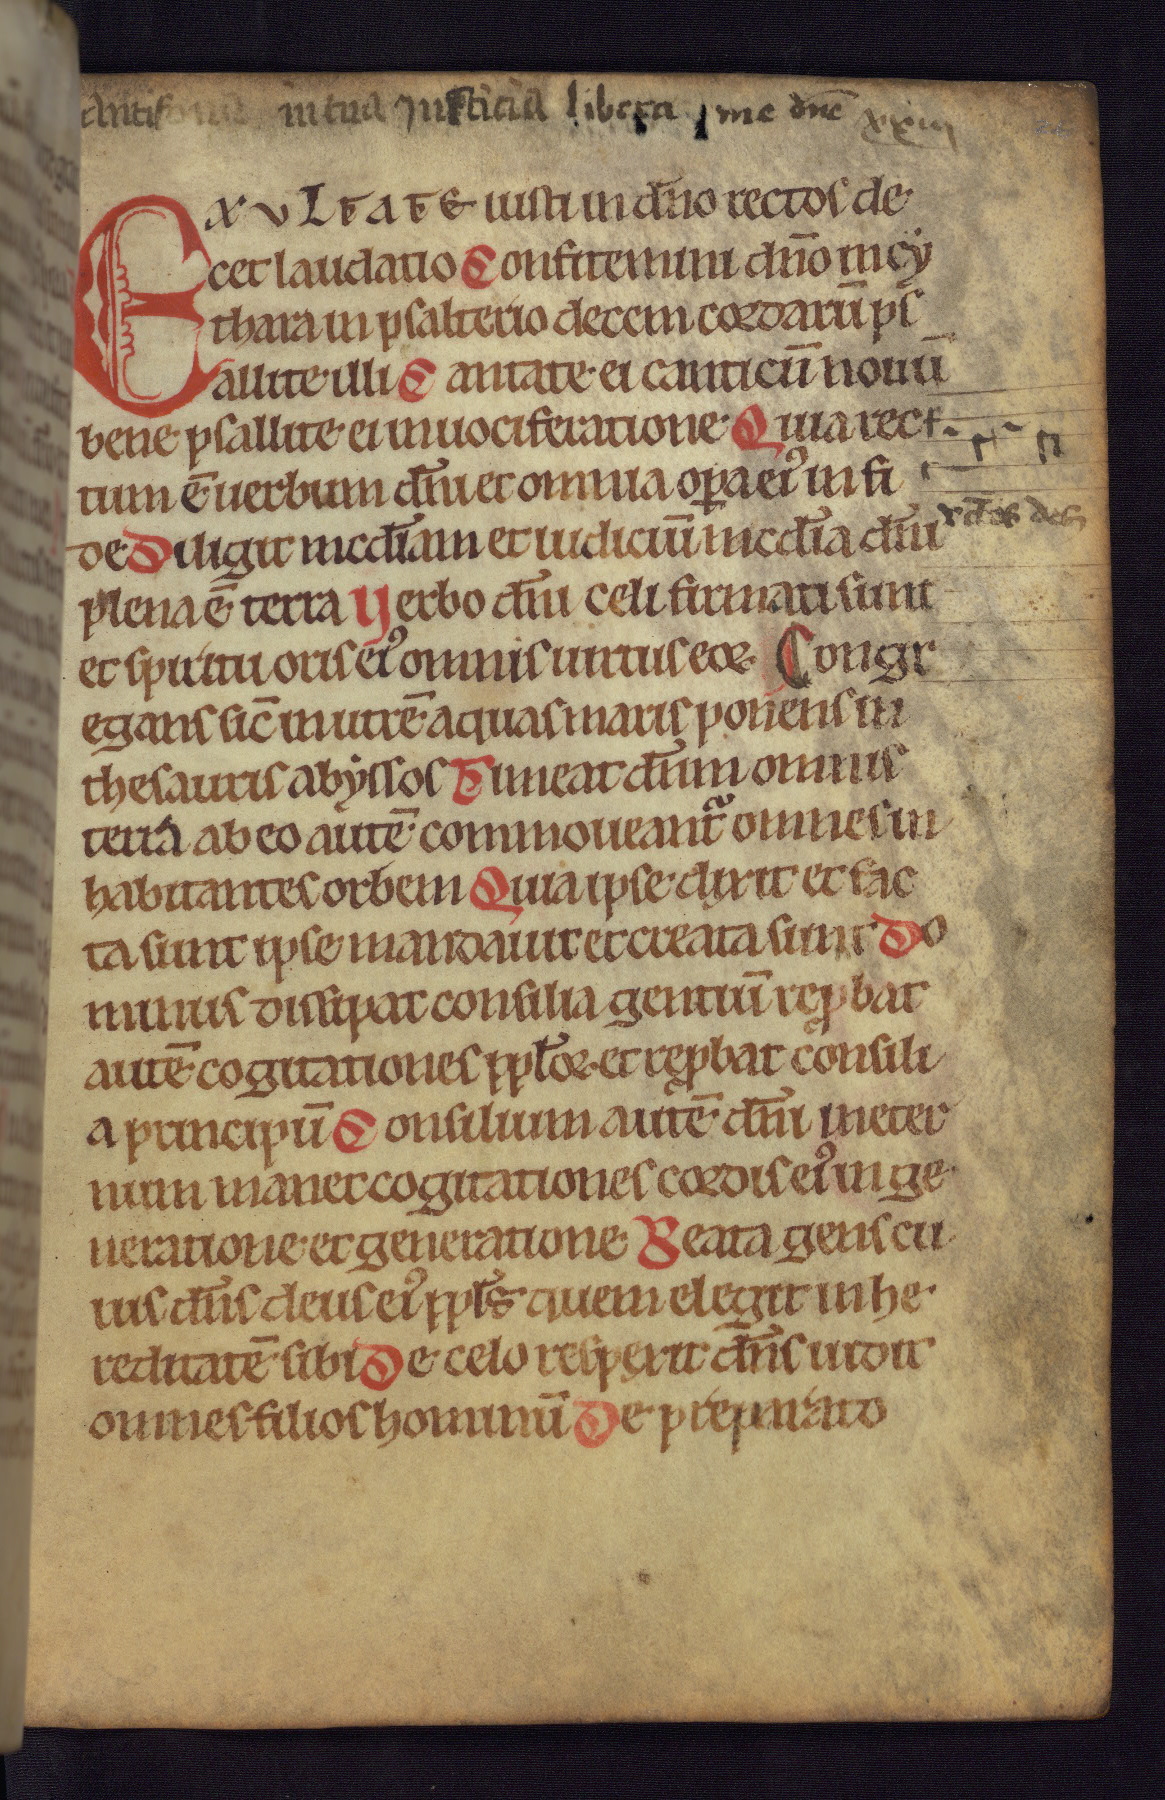 Antifona in tua Justicia libera me dn̄e xxiii
Exultate iusti in dn̄o rectos de
cet laudatio Confitemini dn̄o in cy
thara in psalterio decem cordarū ps
allite illi Cantate ei canticū nouū
bene psallite ei in uociferatione Quia rec
tum ē uerbum dn̄i et omnia oꝑa eiꝰ in fi
de Diligit mcdīam et iudiciū mcdīa dn̄i
plena ē terra Verbo dn̄i celi firmati sunt
et spiritu oris eiꝰ omnis uirtus eoꝝ Congr
egans sic̄ in utrē aquas maris ponens in
thesauris abyssos Timeat dn̄um omnis
terra ab eo autē commoueant᷑ omnes in
habitantes orbem Quia ipse dixit et fac
ta sunt ipse mandauit et creata sunt Do
minus dissipat consilia gentiū reꝓbat
autē cogitationes pploꝝ et reꝓbat consili
a principū Consilium autē dn̄i in eter
num manet cogitationes cordis eiꝰ in ge
neratione et generatione Beata gens cu
ius dn̄s deus eiꝰ ppls̄ quem elegit in he
reditatē sibi De celo respexit dn̄s uidit
omnes filios hominū De preparato